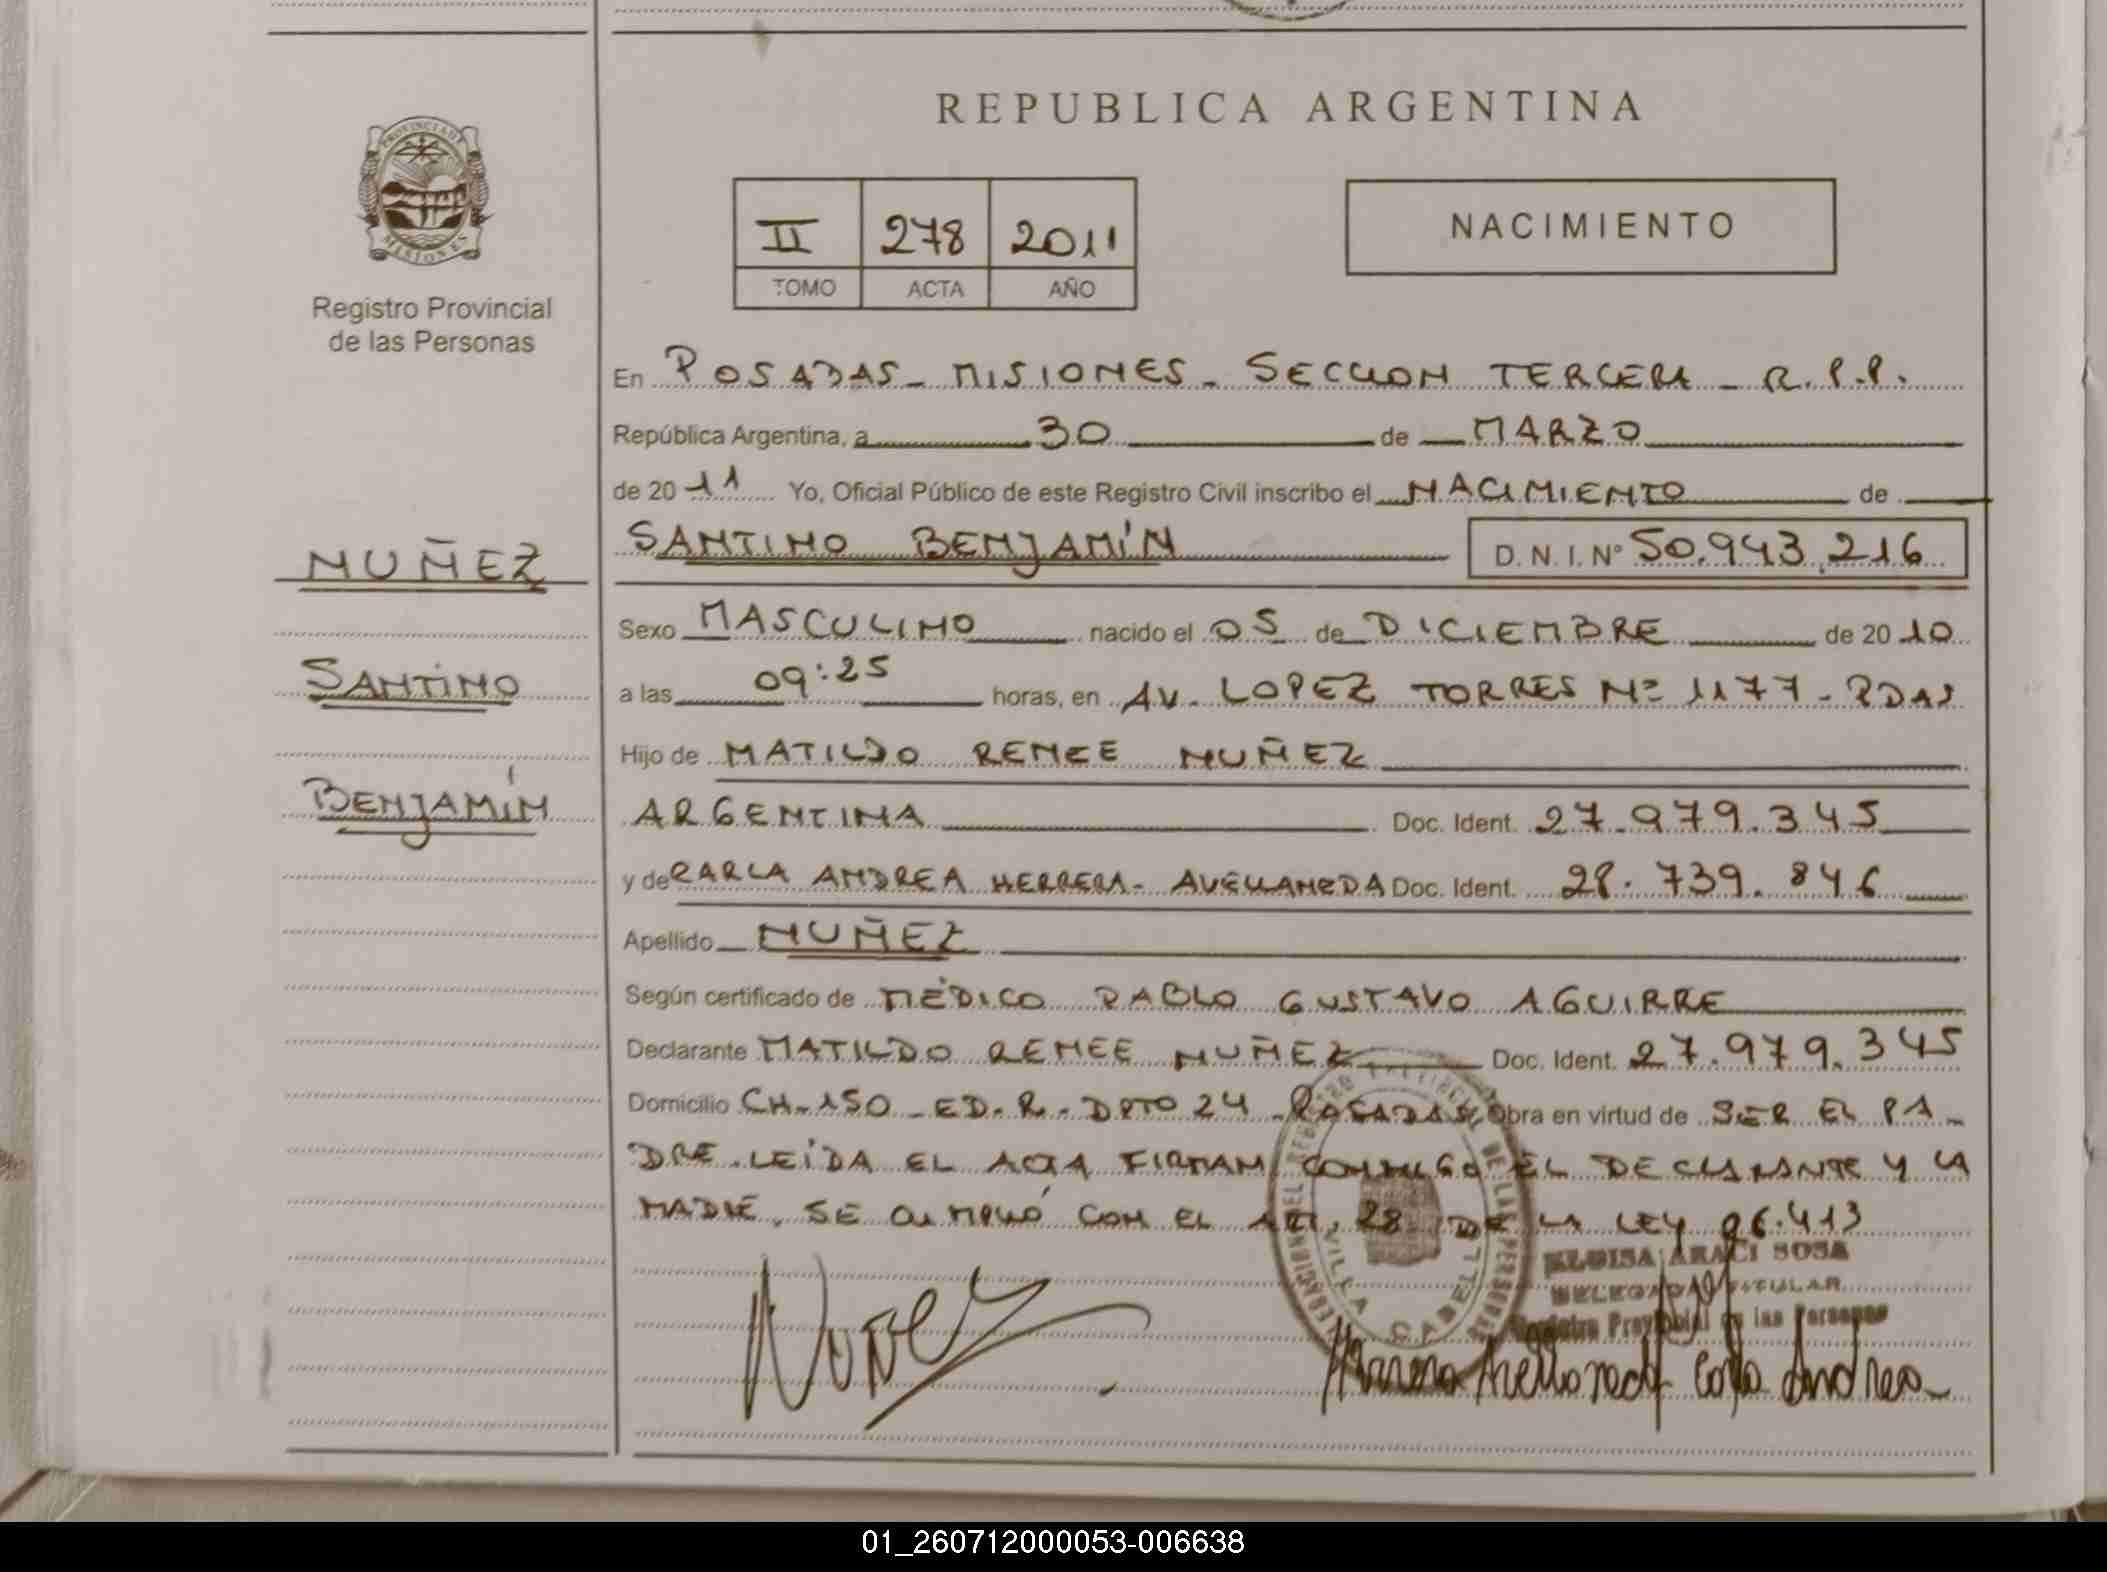 REPUBLICA ARGENTINA
PROVINCIA DE MISIONES
Registro Provincial
de las Personas
II 278 2011
TOMO ACTA AÑO
NACIMIENTO
En POSADAS - MISIONES - SECCION TERCERA - R.P.P.
República Argentina, a 30 de MARZO
de 20 11 Yo, Oficial Público de este Registro Civil inscribo el NACIMIENTO de
SANTINO BENJAMÍN D. N. I. Nº 50.943.216
NUÑEZ
SANTINO
BENJAMÍN
Sexo MASCULINO nacido el 05 de DICIEMBRE de 20 10
a las 09:25 horas, en AV. LOPEZ TORRES Nº 1177 - PDAS
Hijo de MATILDO RENEE NUÑEZ
ARGENTINA Doc. Ident. 27.979.345
y de CARLA ANDREA HERRERA - AVELLANEDA Doc. Ident. 28.739.846
Apellido NUÑEZ
Según certificado de MÉDICO PABLO GUSTAVO AGUIRRE
Declarante MATILDO RENEE NUÑEZ Doc. Ident. 27.979.345
Domicilio CH-150 - ED. R. - DPTO 24 - POSADAS Obra en virtud de SER EL PA-
DRE. LEÍDA EL ACTA FIRMAN CONMIGO EL DECLARANTE Y LA
MADRE. SE CUMPLIÓ CON EL ART. 28 DE LA LEY 26.413
ELOISA ARACI SOSA
DELEGADA TITULAR
Registro Provincial de las Personas
VILLA CABELLO
Nuñez
Herrera Avellaneda Carla Andrea
01_260712000053-006638